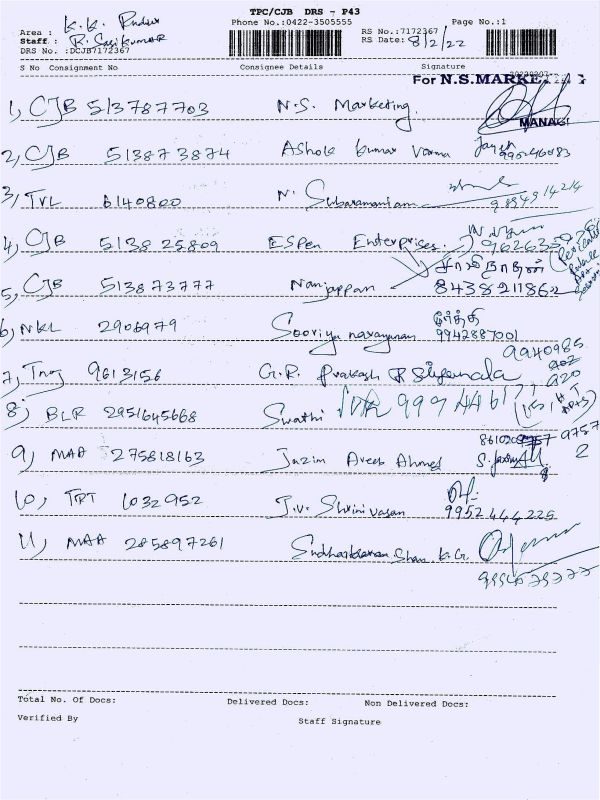 TPC/CJB DRS - P43
Phone No.:0422-3505555 Page No.:1
Area : K.K. Pudur RS No.:7172367
Staff : R. Sasikumar RS Date: 8/2/22
DRS No. :DCJB7172367
S No Consignment No Consignee Details Signature
For N.S.MARKE
1, CJB 513787703 N.S. Marketing
MANAGI
2, CJB 513873874 Ashok kumar Varma
3, TVL 6140800 N. Subaramaniam
4, CJB 513825809 ESPen Enterprises.
5, CJB 513873777 Nanjappan
8438211862
6, NKL 2906979 Sooriya narayanan
9942887001
9940985
7, 9613156 G.R. Prakash
920
8, BLR 2951645668 Swathi
9, MAA 275818163 Jazim Areeb Ahmed
9757
2
10, TPT 1032952 J.V. Shrinivasan
9952464225
11, MAA 285897261 Shan K.G.
Total No. Of Docs: Delivered Docs: Non Delivered Docs:
Verified By Staff Signature